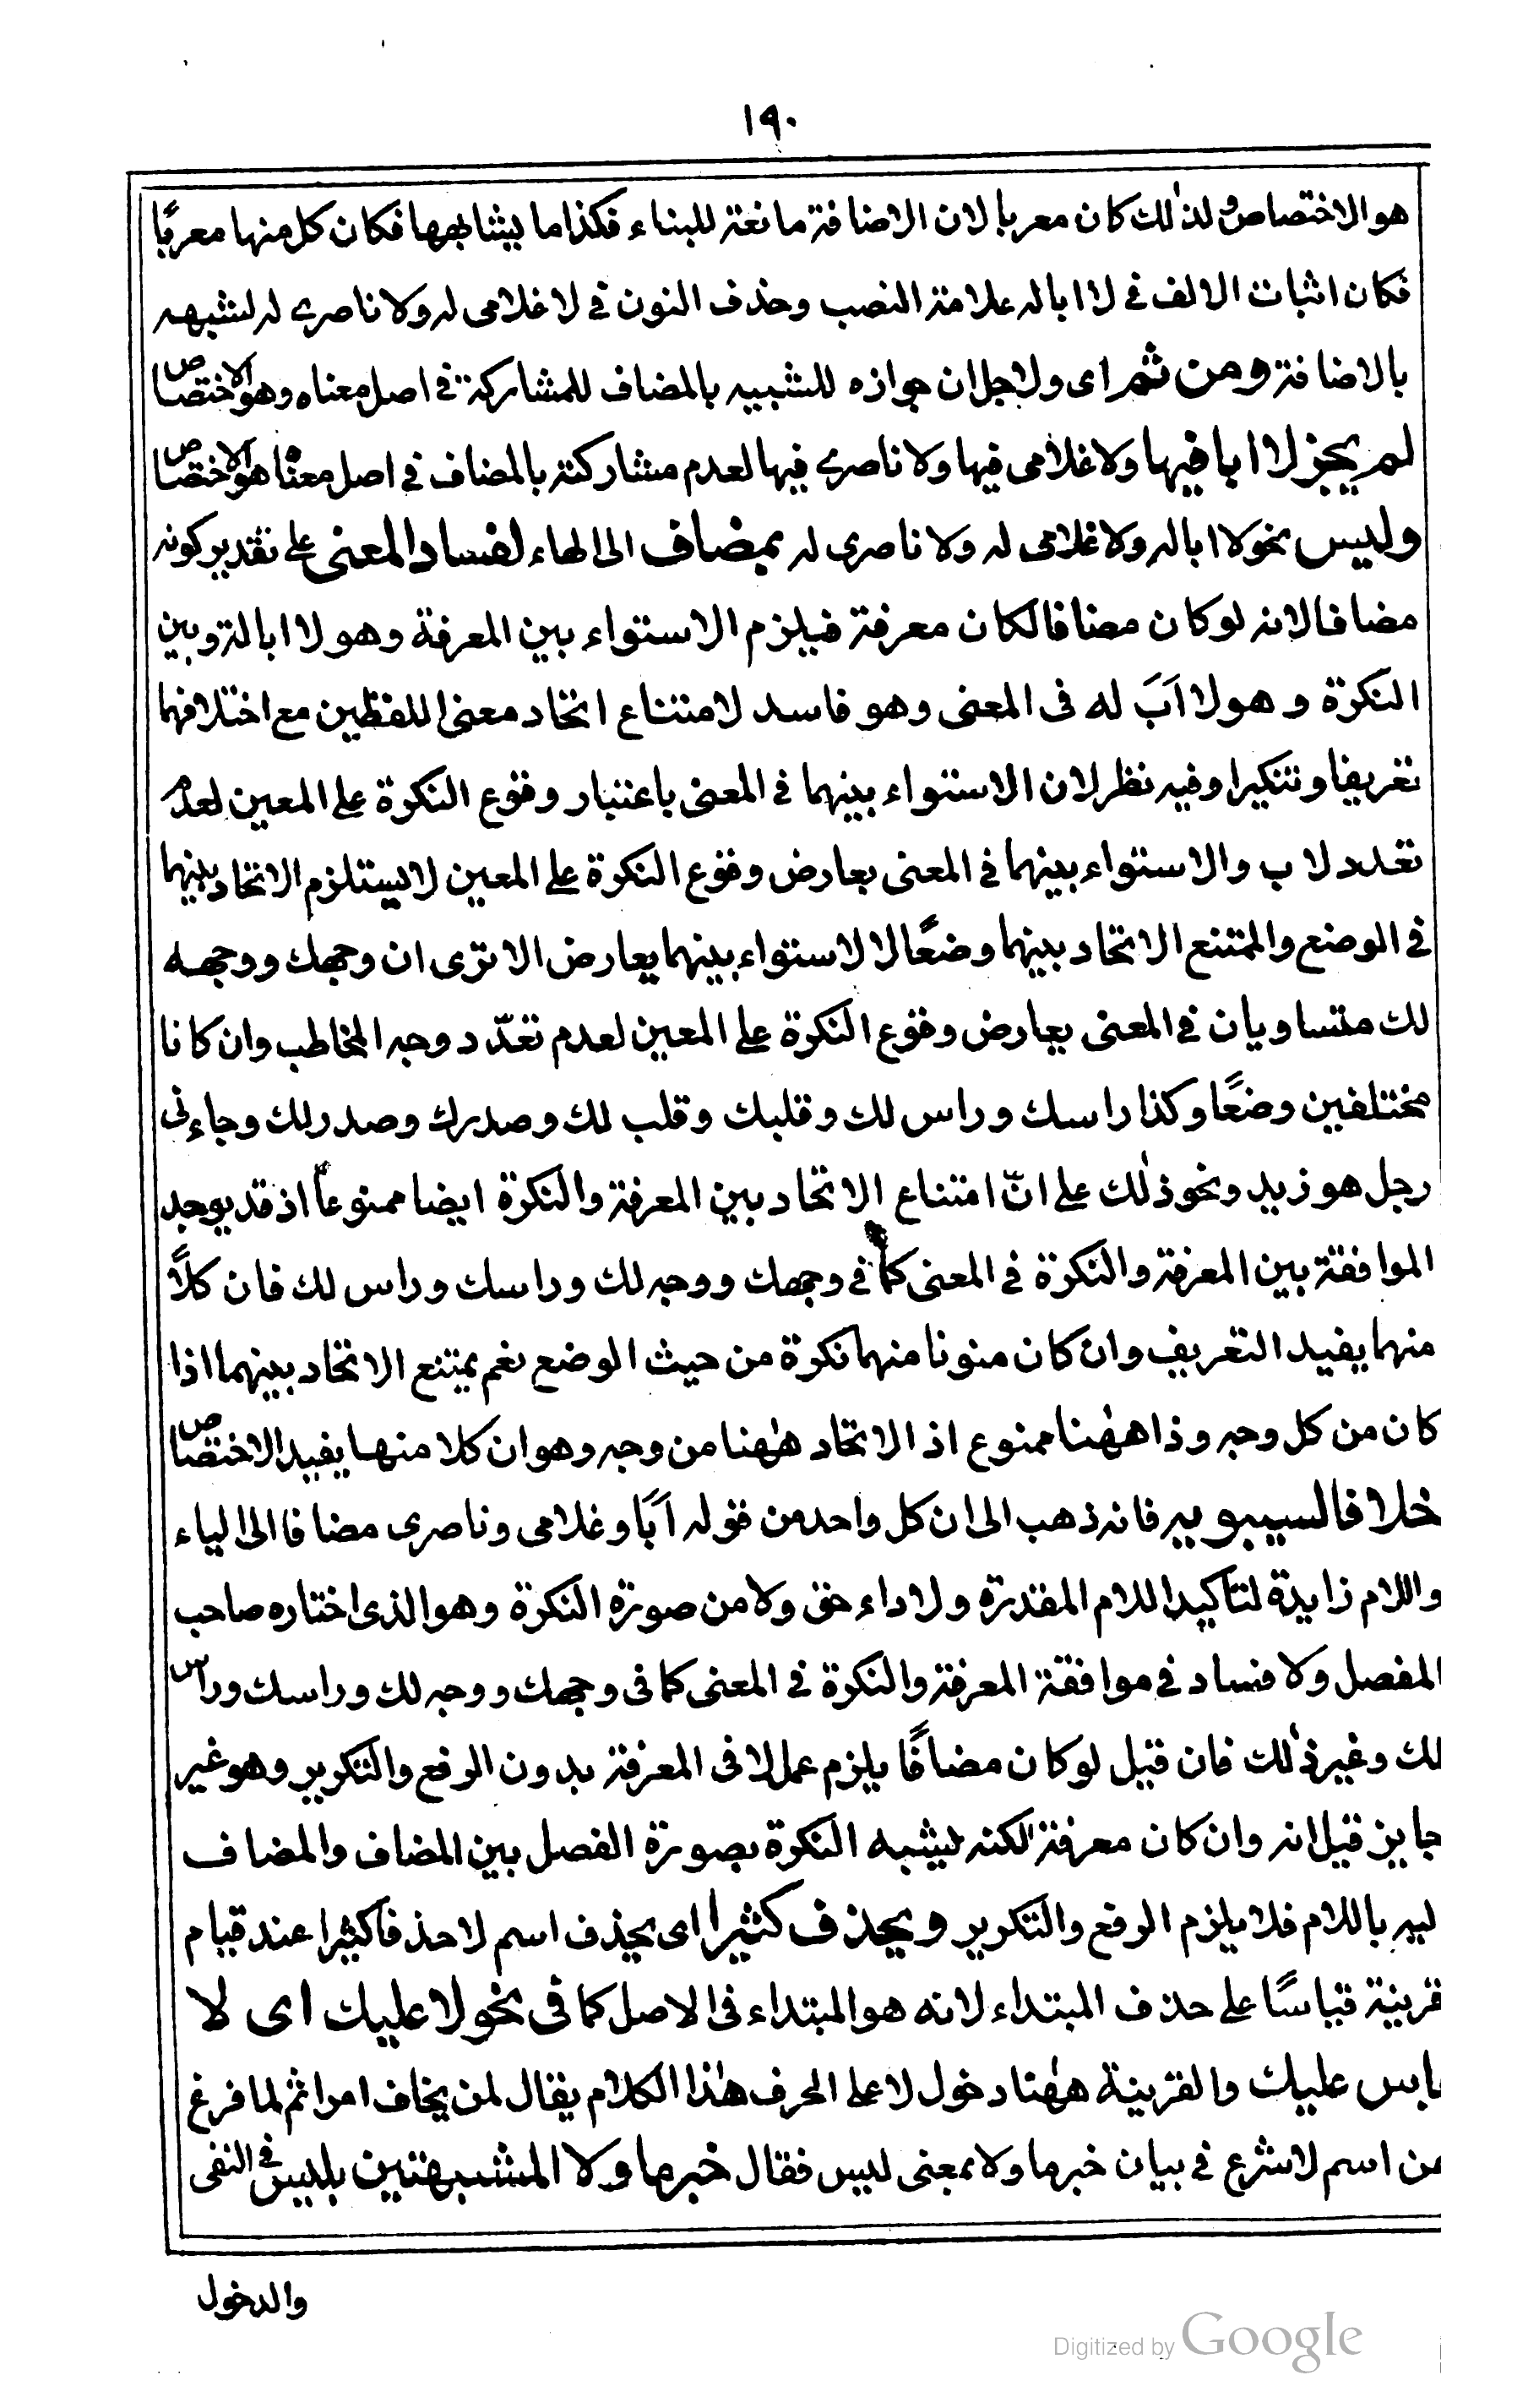 ١٩٠
هو الاختصاص ولذلك كان معربا لان الاضافة مانعة للبناء فكذا ما يشابهها فكان كل منها معربًا
فكان اثبات الالف فى لا ابا له علامة النصب وحذف النون فى لا غلامى له ولا ناصرى له لشبهه
بالاضافة ومن ثمر اى ولاجل ان جوازه للشبيه بالمضاف للمشاركة فى اصل معناه وهو الاختصاص
لم يجز لا ابا فيها ولا غلامى فيها ولا ناصرى فيها لعدم مشاركته بالمضاف فى اصل معناه هو الاختصاص
وليس نحو لا ابا له ولا غلامى له ولا ناصرى له بمضاف الى الهاء لفساد المعنى على تقدير كونه
مضافا لانه لو كان مضافا لكان معرفة فيلزم الاستواء بين المعرفة وهو لا ابا له وبين
النكرة وهو لا اَبَ له فى المعنى وهو فاسد لامتناع اتحاد معنى اللفظين مع اختلافهما
تعريفا وتنكيرا وفيه نظر لان الاستواء بينهما فى المعنى باعتبار وقوع النكرة على المعين لعدم
تعدد لاب والاستواء بينهما فى المعنى بعارض وقوع النكرة على المعين لا يستلزم الاتحاد بينهما
فى الوضع والممتنع الاتحاد بينهما وضعًا لا الاستواء بينهما بعارض الا ترى ان وجهك ووجهه
لك متساويان فى المعنى بعارض وقوع النكرة على المعين لعدم تعدّد وجه المخاطب وان كانا
مختلفين وضعًا وكذا راسك وراس لك وقلبك وقلب لك وصدرك وصدر لك وجاءنى
رجل هو زيد ونحو ذٰلك على انّ امتناع الاتحاد بين المعرفة والنكرة ايضا ممنوعاً اذ قد يوجد
الموافقة بين المعرفة والنكرة فى المعنى كما فى وجهك ووجه لك وراسك وراس لك فان كلًّا
منهما يفيد التعريف وان كان منونا منهما نكرة من حيث الوضع نعم يمتنع الاتحاد بينهما اذا
كان من كل وجه وذا هٰهنا ممنوع اذ الاتحاد هٰهنا من وجه وهو ان كلا منهما يفيد الاختصاص
خلافا لسيبويه فانه ذهب الى ان كل واحد من قوله اَبًا وغلامى وناصرى مضافا الى الياء
واللام زايدة لتاكيد اللام المقدرة ولاداء حق ولا من صورة النكرة وهو الذى اختاره صاحب
المفصل ولا فساد فى موافقة المعرفة والنكرة فى المعنى كما فى وجهك ووجه لك وراسك وراس
لك وغير ذٰلك فان قيل لو كان مضافًا يلزم عمل لا فى المعرفة بدون الرفع والتكرير وهو غير
جايز قيل انه وان كان معرفة لكنه يشبه النكرة بصورة الفصل بين المضاف والمضاف
ليه باللام فلا يلزم الرفع والتكرير ويحذف كثيرا اى يحذف اسم لا حذفا كثيرا عند قيام
قرينة قياسًا على حذف المبتداء لانه هو المبتداء فى الاصل كما فى نحو لا عليك اى لا
باس عليك والقرينة هٰهنا دخول لا على الحرف هٰذا الكلام يقال لمن يخاف امرا ثم لما فرغ
من اسم لا شرع فى بيان خبر ما ولا بمعنى ليس فقال خبر ما ولا المشبهتين بليس فى النفى
والدخول
Digitized by Google